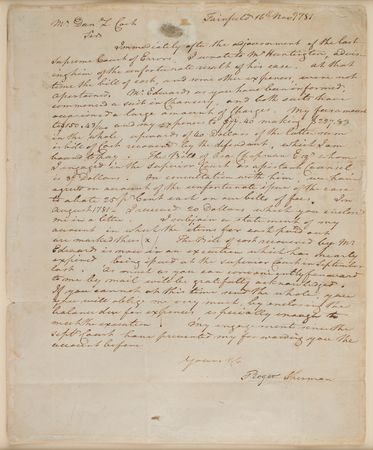 Mr. Dan L Cook Fairfield 16th Novr 1781
Sir
Immediately after the adjournment of the last
Supreme Court of Errors, I wrote to Mr Huntington, advis-
ing him of the unfortunate result of his case. at that
time the bill of cost, and some other expenses, were not
ascertained. Mr Edwards as you have been informed,
commenced a suit in Chancery, and both suits have
occasioned a large amount of charges. My fees amount
to and my expenses to making $237.93
in the whole, upwards of 40 Dollars of the latter sum
is bill of Cost recovered by the defendant, which I am
bound to pay. The Bill of Esq whom
I engaged in the Supreme Court as assistant Counsel
is 35 Dollars. In consultation with him we have
agreed on account of the unfortunate issue of the case
to abate 25 pr Cent each on our bills of fees. In
August 1781 I received 20 Dollars which you enclosed
me in a letter. I subjoin a statement of my
account in which the items for cash paid out
are marked thus (x) The Bill of cost recovered by Mr
Edwards is now in an execution which has nearly
expired being issued at the superior Court in September
last. As much as you can conveniently forward
to me by mail will be gratefully acknowledged.
If you cannot at this time send the whole, you
will oblige me very much, by sending the
balance due for expenses, especially enough to
meet the execution. My engagements since the
Septr Court have prevented my forwarding you the
account before
Yours &c
Roger Sherman